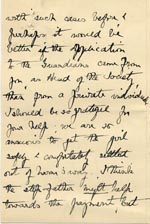 with such cases before &
perhaps it would be
better if the application
to the Guardians came from
you as Head of the Society
than from a private individual
I should be so grateful for
your help we are so
anxious to get the girl
safely & completely
out of harm's way. I think
the step father might help
towards the payment but